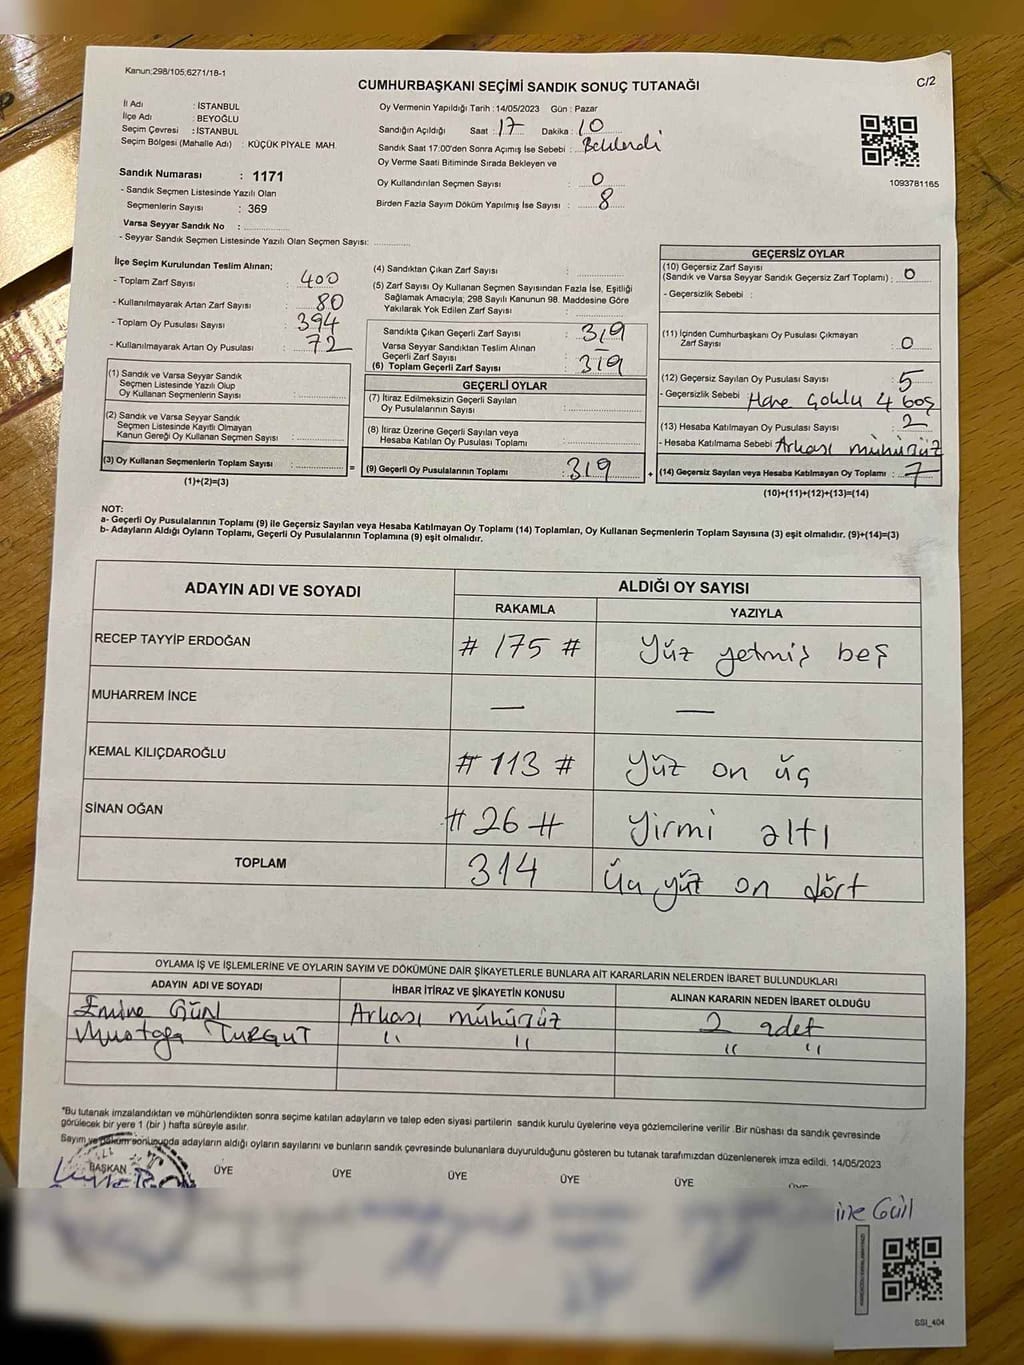 Kanun:298/105,6271/18-1
C/2
CUMHURBAŞKANI SEÇİMİ SANDIK SONUÇ TUTANAĞI
İl Adı : İSTANBUL
İlçe Adı : BEYOĞLU
Seçim Çevresi : İSTANBUL
Seçim Bölgesi (Mahalle Adı) : KÜÇÜK PİYALE MAH.
Oy Vermenin Yapıldığı Tarih : 14/05/2023 Gün : Pazar
Sandığın Açıldığı Saat : 17 Dakika : 10
Sandık Saat 17:00'den Sonra Açımış İse Sebebi : Beklendi
Oy Verme Saati Bitiminde Sırada Bekleyen ve
Oy Kullandırılan Seçmen Sayısı : 0
Birden Fazla Sayım Döküm Yapılmış İse Sayısı : 8
1093781165
Sandık Numarası : 1171
- Sandık Seçmen Listesinde Yazılı Olan
Seçmenlerin Sayısı : 369
Varsa Seyyar Sandık No :
- Seyyar Sandık Seçmen Listesinde Yazılı Olan Seçmen Sayısı:
İlçe Seçim Kurulundan Teslim Alınan;
- Toplam Zarf Sayısı : 400
- Kullanılmayarak Artan Zarf Sayısı : 80
- Toplam Oy Pusulası Sayısı : 394
- Kullanılmayarak Artan Oy Pusulası : 72
(1) Sandık ve Varsa Seyyar Sandık
Seçmen Listesinde Yazılı Olup
Oy Kullanan Seçmenlerin Sayısı :
(2) Sandık ve Varsa Seyyar Sandık
Seçmen Listesinde Kayıtlı Olmayan
Kanun Gereği Oy Kullanan Seçmen Sayısı :
(3) Oy Kullanan Seçmenlerin Toplam Sayısı : =
(1)+(2)=(3)
(4) Sandıktan Çıkan Zarf Sayısı :
(5) Zarf Sayısı Oy Kullanan Seçmen Sayısından Fazla İse, Eşitliği
Sağlamak Amacıyla; 298 Sayılı Kanunun 98. Maddesine Göre
Yakılarak Yok Edilen Zarf Sayısı :
Sandıkta Çıkan Geçerli Zarf Sayısı : 319
Varsa Seyyar Sandıktan Teslim Alınan
Geçerli Zarf Sayısı : —
(6) Toplam Geçerli Zarf Sayısı : 319
GEÇERLİ OYLAR
(7) İtiraz Edilmeksizin Geçerli Sayılan
Oy Pusulalarının Sayısı :
(8) İtiraz Üzerine Geçerli Sayılan veya
Hesaba Katılan Oy Pusulası Toplamı :
(9) Geçerli Oy Pusulalarının Toplamı : 319 +
GEÇERSİZ OYLAR
(10) Geçersiz Zarf Sayısı
(Sandık ve Varsa Seyyar Sandık Geçersiz Zarf Toplamı) : 0
- Geçersizlik Sebebi :
(11) İçinden Cumhurbaşkanı Oy Pusulası Çıkmayan
Zarf Sayısı : 0
(12) Geçersiz Sayılan Oy Pusulası Sayısı : 5
- Geçersizlik Sebebi : 4 boş
(13) Hesaba Katılmayan Oy Pusulası Sayısı : 2
- Hesaba Katılmama Sebebi : Arkası mühürsüz
(14) Geçersiz Sayılan veya Hesaba Katılmayan Oy Toplamı : 7
(10)+(11)+(12)+(13)=(14)
NOT:
a- Geçerli Oy Pusulalarının Toplamı (9) ile Geçersiz Sayılan veya Hesaba Katılmayan Oy Toplamı (14) Toplamları, Oy Kullanan Seçmenlerin Toplam Sayısına (3) eşit olmalıdır. (9)+(14)=(3)
b- Adayların Aldığı Oyların Toplamı, Geçerli Oy Pusulalarının Toplamına (9) eşit olmalıdır.
ADAYIN ADI VE SOYADI ALDIĞI OY SAYISI
RAKAMLA YAZIYLA
RECEP TAYYİP ERDOĞAN # 175 # Yüz yetmiş beş
MUHARREM İNCE — —
KEMAL KILIÇDAROĞLU # 113 # Yüz on üç
SİNAN OĞAN # 26 # Yirmi altı
TOPLAM 314 Üç yüz on dört
OYLAMA İŞ VE İŞLEMLERİNE VE OYLARIN SAYIM VE DÖKÜMÜNE DAİR ŞİKAYETLERLE BUNLARA AİT KARARLARIN NELERDEN İBARET BULUNDUKLARI
ADAYIN ADI VE SOYADI İHBAR İTİRAZ VE ŞİKAYETİN KONUSU ALINAN KARARIN NEDEN İBARET OLDUĞU
Emine GÜL Arkası mühürsüz 2 adet
Mustafa TURGUT " " " "
*Bu tutanak imzalandıktan ve mühürlendikten sonra seçime katılan adayların ve talep eden siyasi partilerin sandık kurulu üyelerine veya gözlemcilerine verilir. Bir nüshası da sandık çevresinde
görülecek bir yere 1 (bir ) hafta süreyle asılır.
Sayım ve döküm sonucunda adayların aldığı oyların sayılarını ve bunların sandık çevresinde bulunanlara duyurulduğunu gösteren bu tutanak tarafımızdan düzenlenerek imza edildi. 14/05/2023
BAŞKAN ÜYE ÜYE ÜYE ÜYE ÜYE
Gül
SSI_404